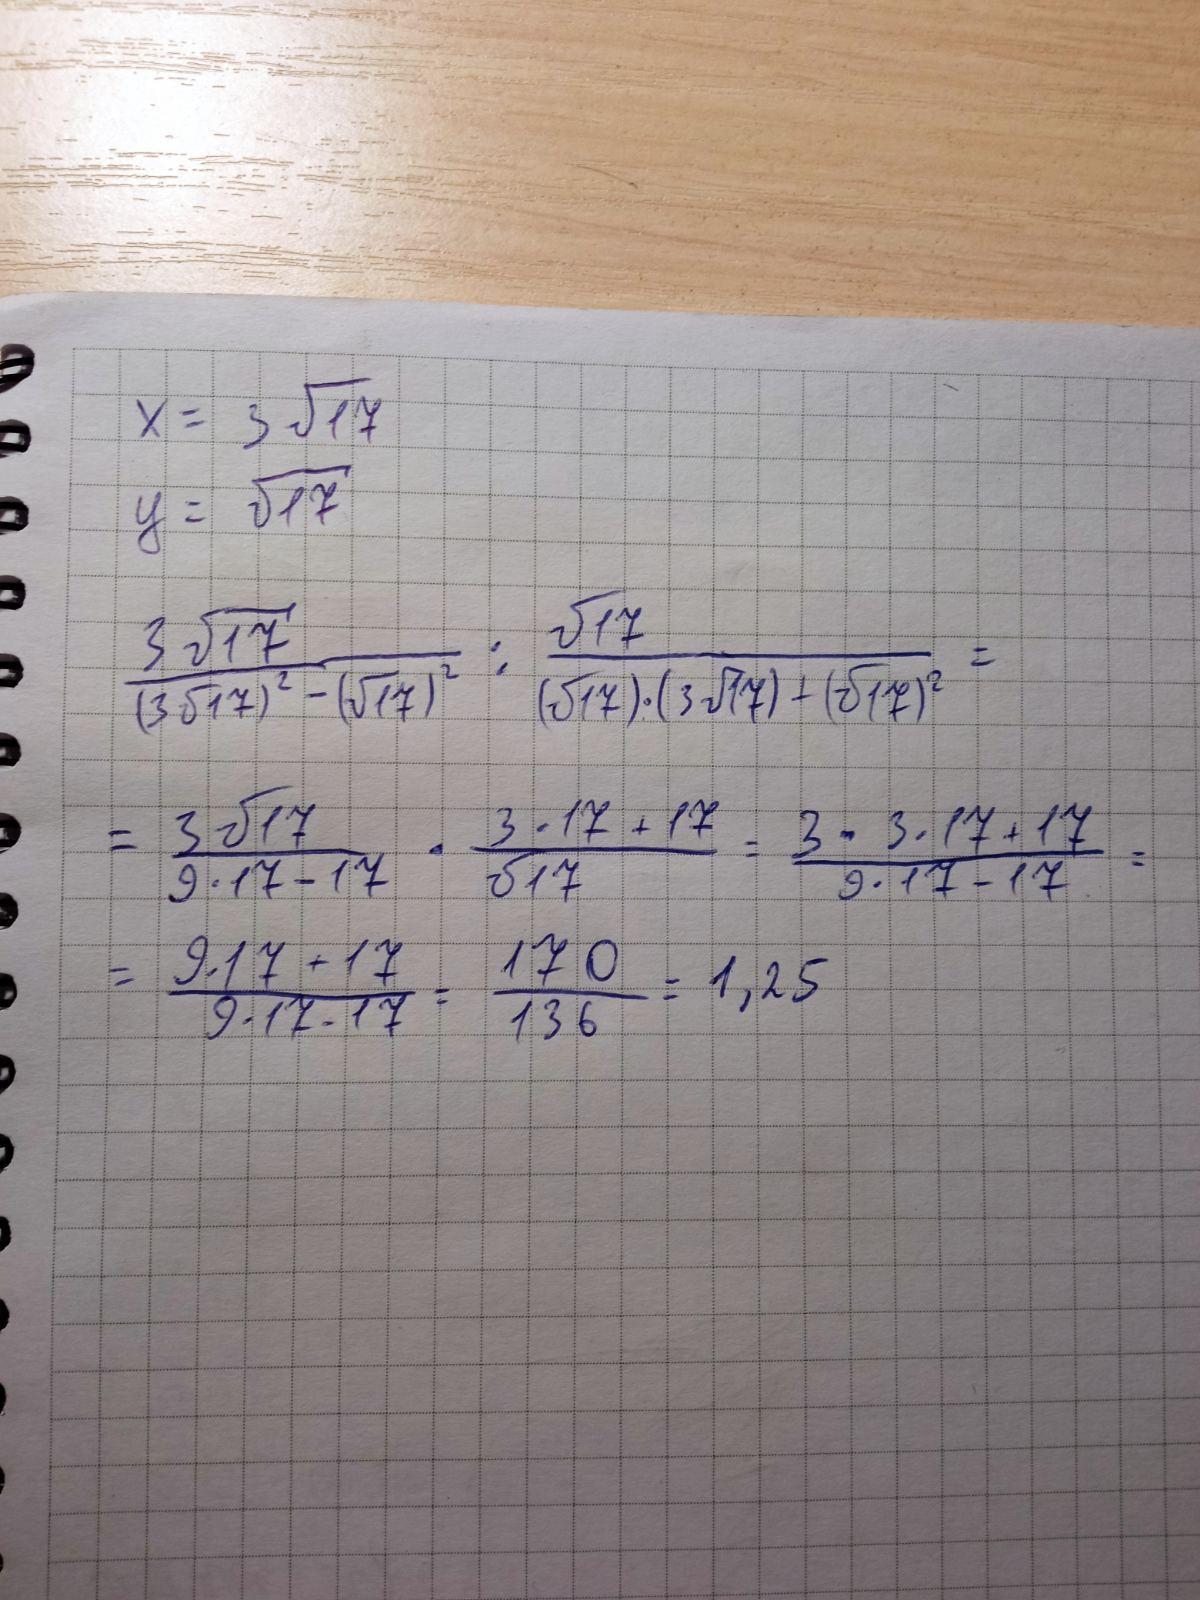 x = 3√17
y = √17
3√17 / (3√17)² - (√17)² : √17 / (√17)·(3√17) + (√17)² =
= 3√17 / 9·17 - 17 · 3·17 + 17 / √17 = 3 · 3·17 + 17 / 9·17 - 17 =
= 9·17 + 17 / 9·17 - 17 = 170 / 136 = 1,25